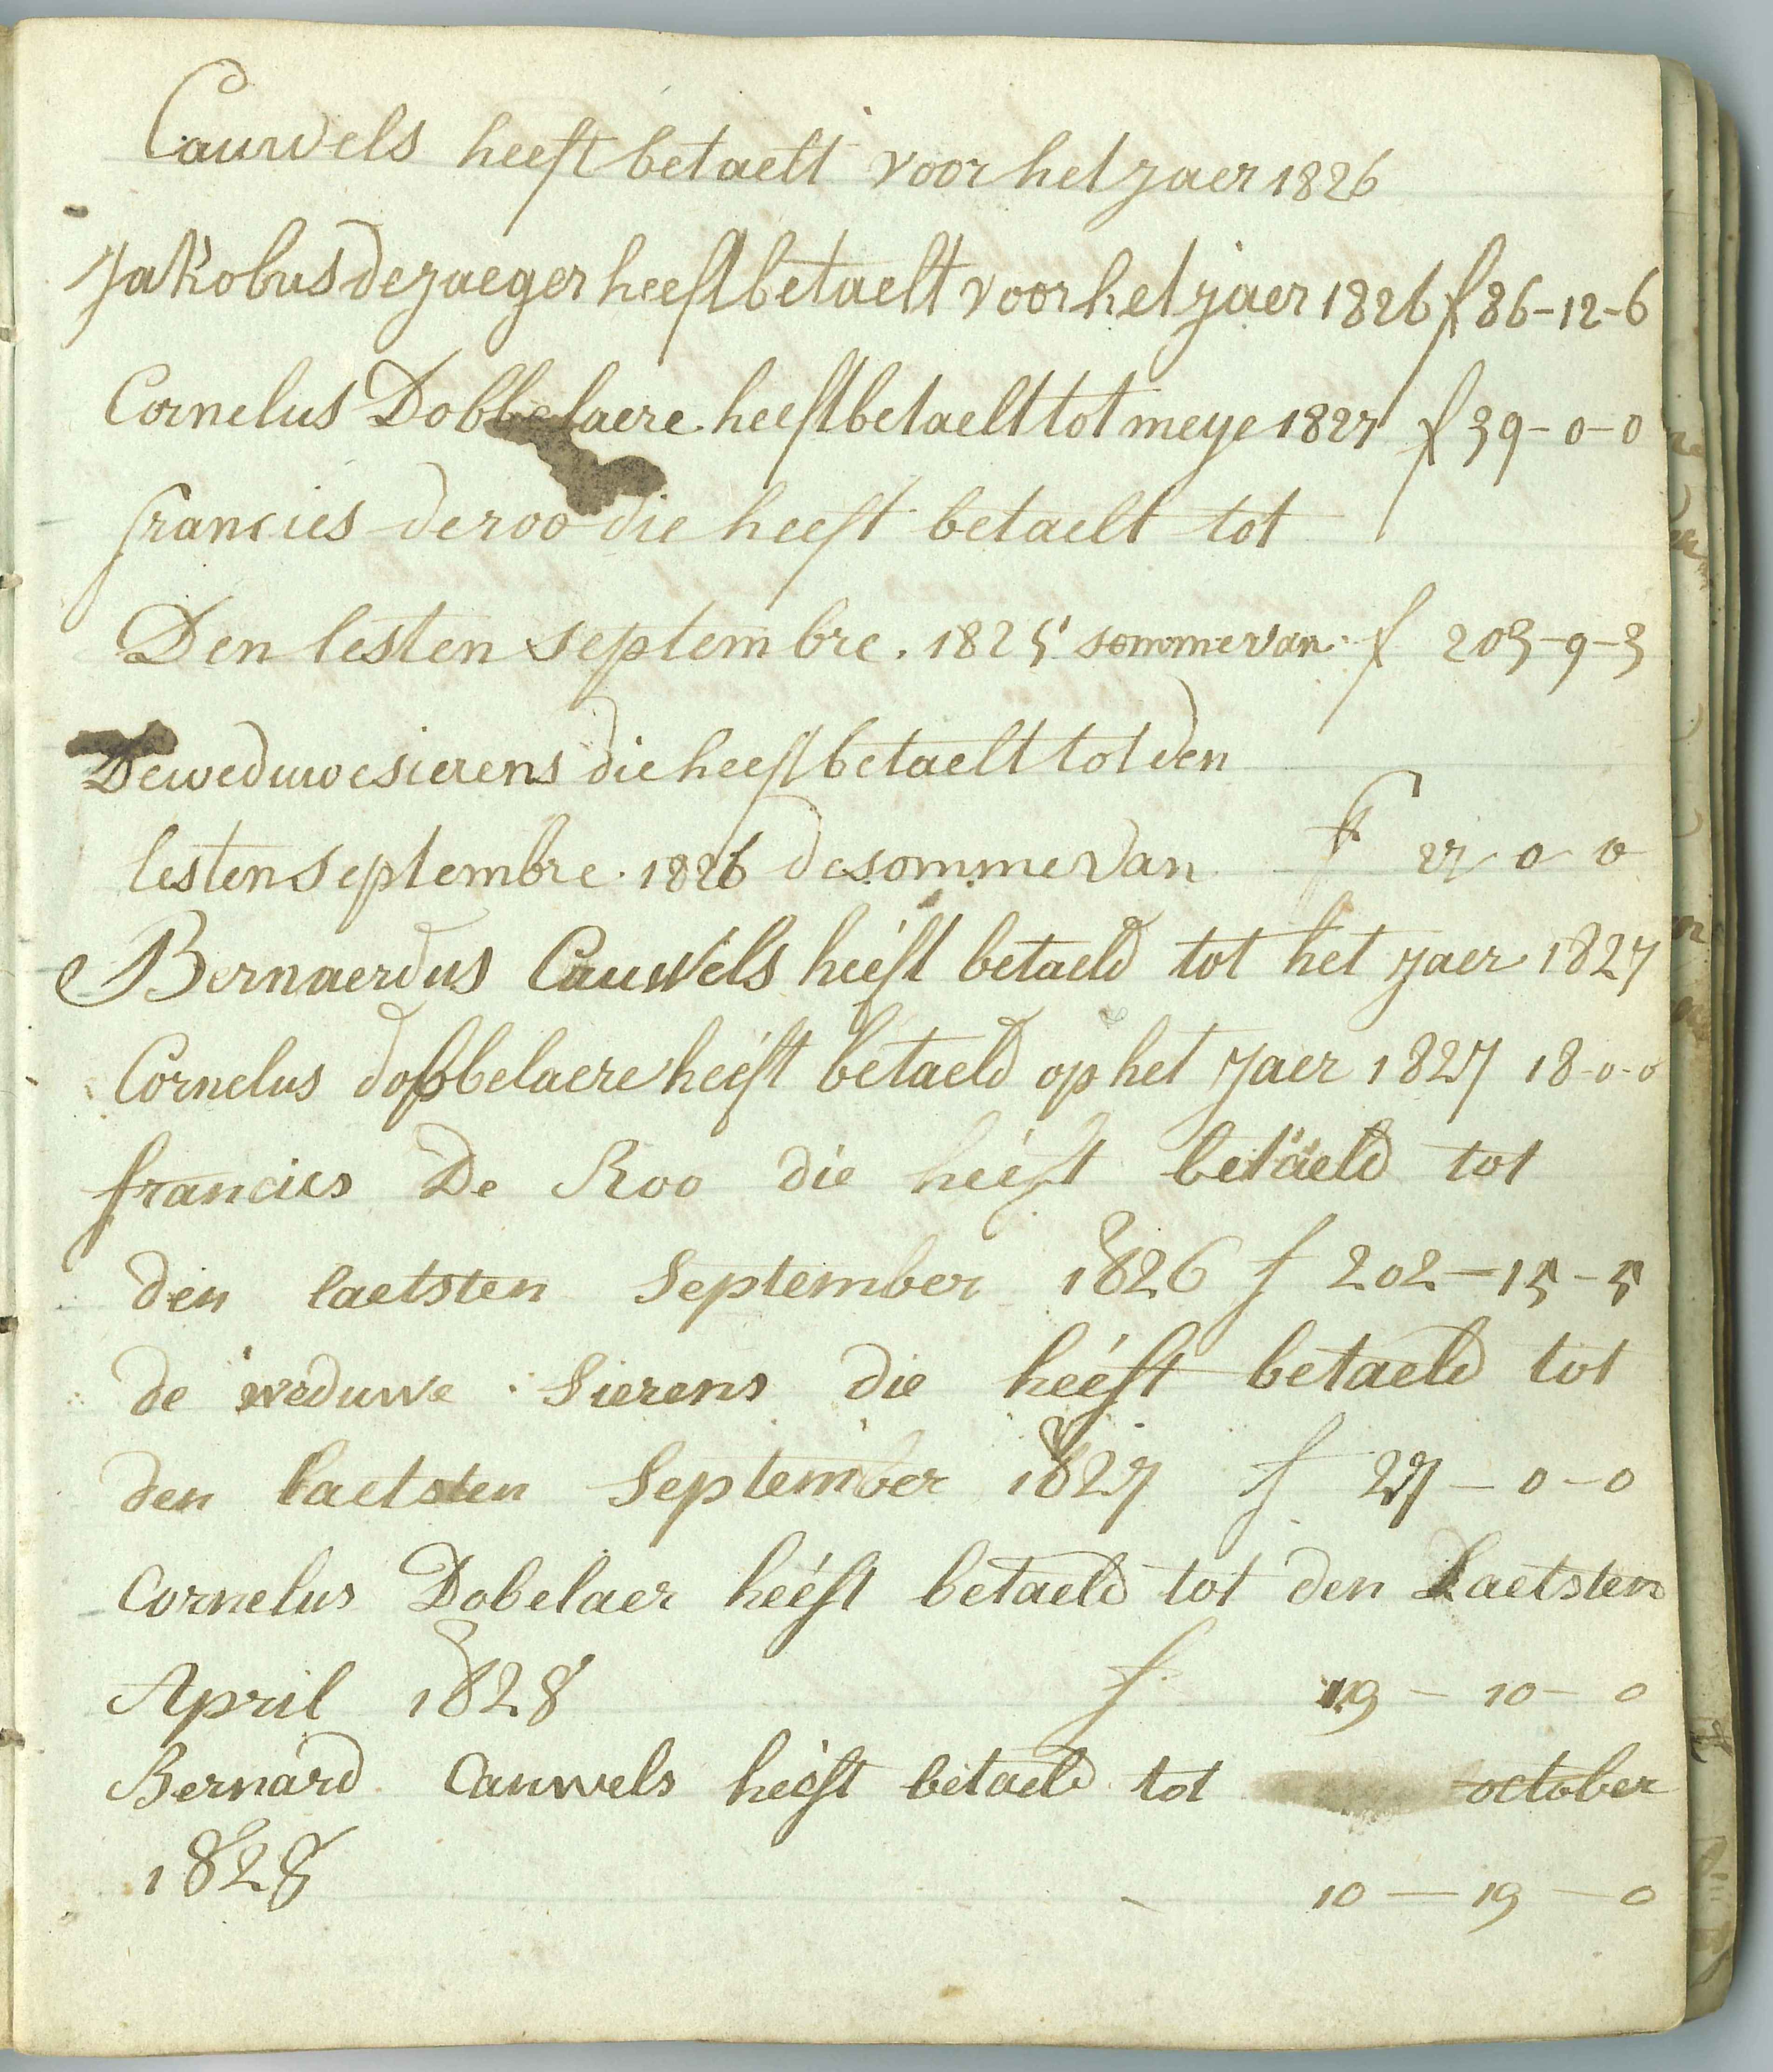 Cauwels heeft betaelt voor het jaer 1826
Jakobus de jaeger heeft betaelt voor het jaer 1826 f 86-12-6
Cornelus Dobbelaere heeft betaelt tot meye 1827 f 39-0-0
francies deroo die heeft betaelt tot
Den lesten septembre. 1825 sommevan f 203-9-3
De weduwe sierens die heeft betaelt tot den
lesten septembre. 1826 de somme van f 27 0 0
Bernaerdus Cauwels heeft betaeld tot het jaer 1827
Cornelus dobbelaere heeft betaeld op het jaer 1827 18-0-0
francies De Roo die heeft betaeld tot
den laetsten September 1826 f 202-15-5
de weduwe Sierens die heeft betaeld tot
den laetsten September 1827 f 27-0-0
Cornelus Dobelaer heeft betaeld tot den Laetsten
April 1828 f 19-10-0
Bernard Cauwels heeft betaeld tot october
1828 10-19-0